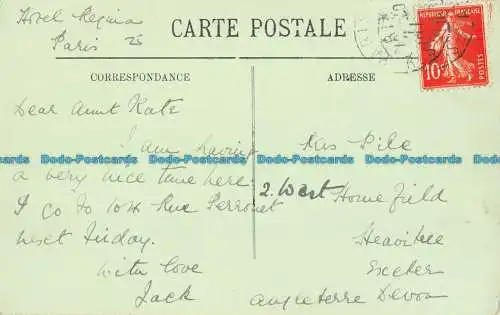 Hotel Regina
Paris 25
CARTE POSTALE
CORRESPONDANCE
ADRESSE
RÉPUBLIQUE FRANÇAISE
10
Dear Aunt Kate
I am having
a very nice time here
I go to 104 Rue Perronet
next Friday.
With love
Jack
Mrs Pile
2. West Homefield
Heavitree
Exeter
Angleterre Devon
Dodo-Postcards Dodo-Postcards Dodo-Postcards Dodo-Postcards Dodo-Postcards
Dodo-Postcards Dodo-Postcards Dodo-Postcards Dodo-Postcards Dodo-Postcards